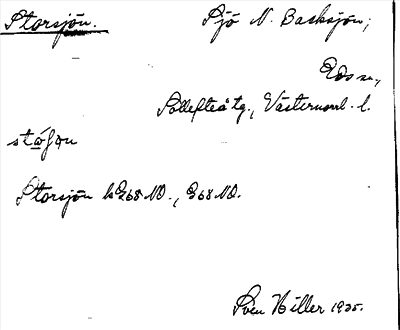 Storsjön.
Sjö N. Backsjön;
Eds sn.,
Sollefteå tg., Västernorrl. l.
Storsjön k 368 NO., 368 NO.
Sven Hiller 1935.